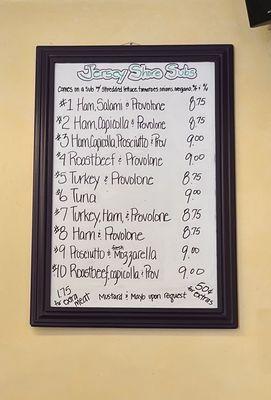 Jersey Shore Subs
Comes on a Sub w/ shredded lettuce, tomatoes, onions, oregano, S + P
#1 Ham, Salami & Provolone 8.75
#2 Ham, Capicolla & Provolone 8.75
#3 Ham, Capicolla, Prosciutto & Prov 9.00
#4 Roastbeef & Provolone 9.00
#5 Turkey & Provolone 8.75
#6 Tuna 9.00
#7 Turkey, Ham, & Provolone 8.75
#8 Ham & Provolone 8.75
#9 Prosciutto & fresh Mozzarella 9.00
#10 Roastbeef, capicolla & Prov 9.00
1.75 for extra meat
Mustard & Mayo upon request
50¢ for extras